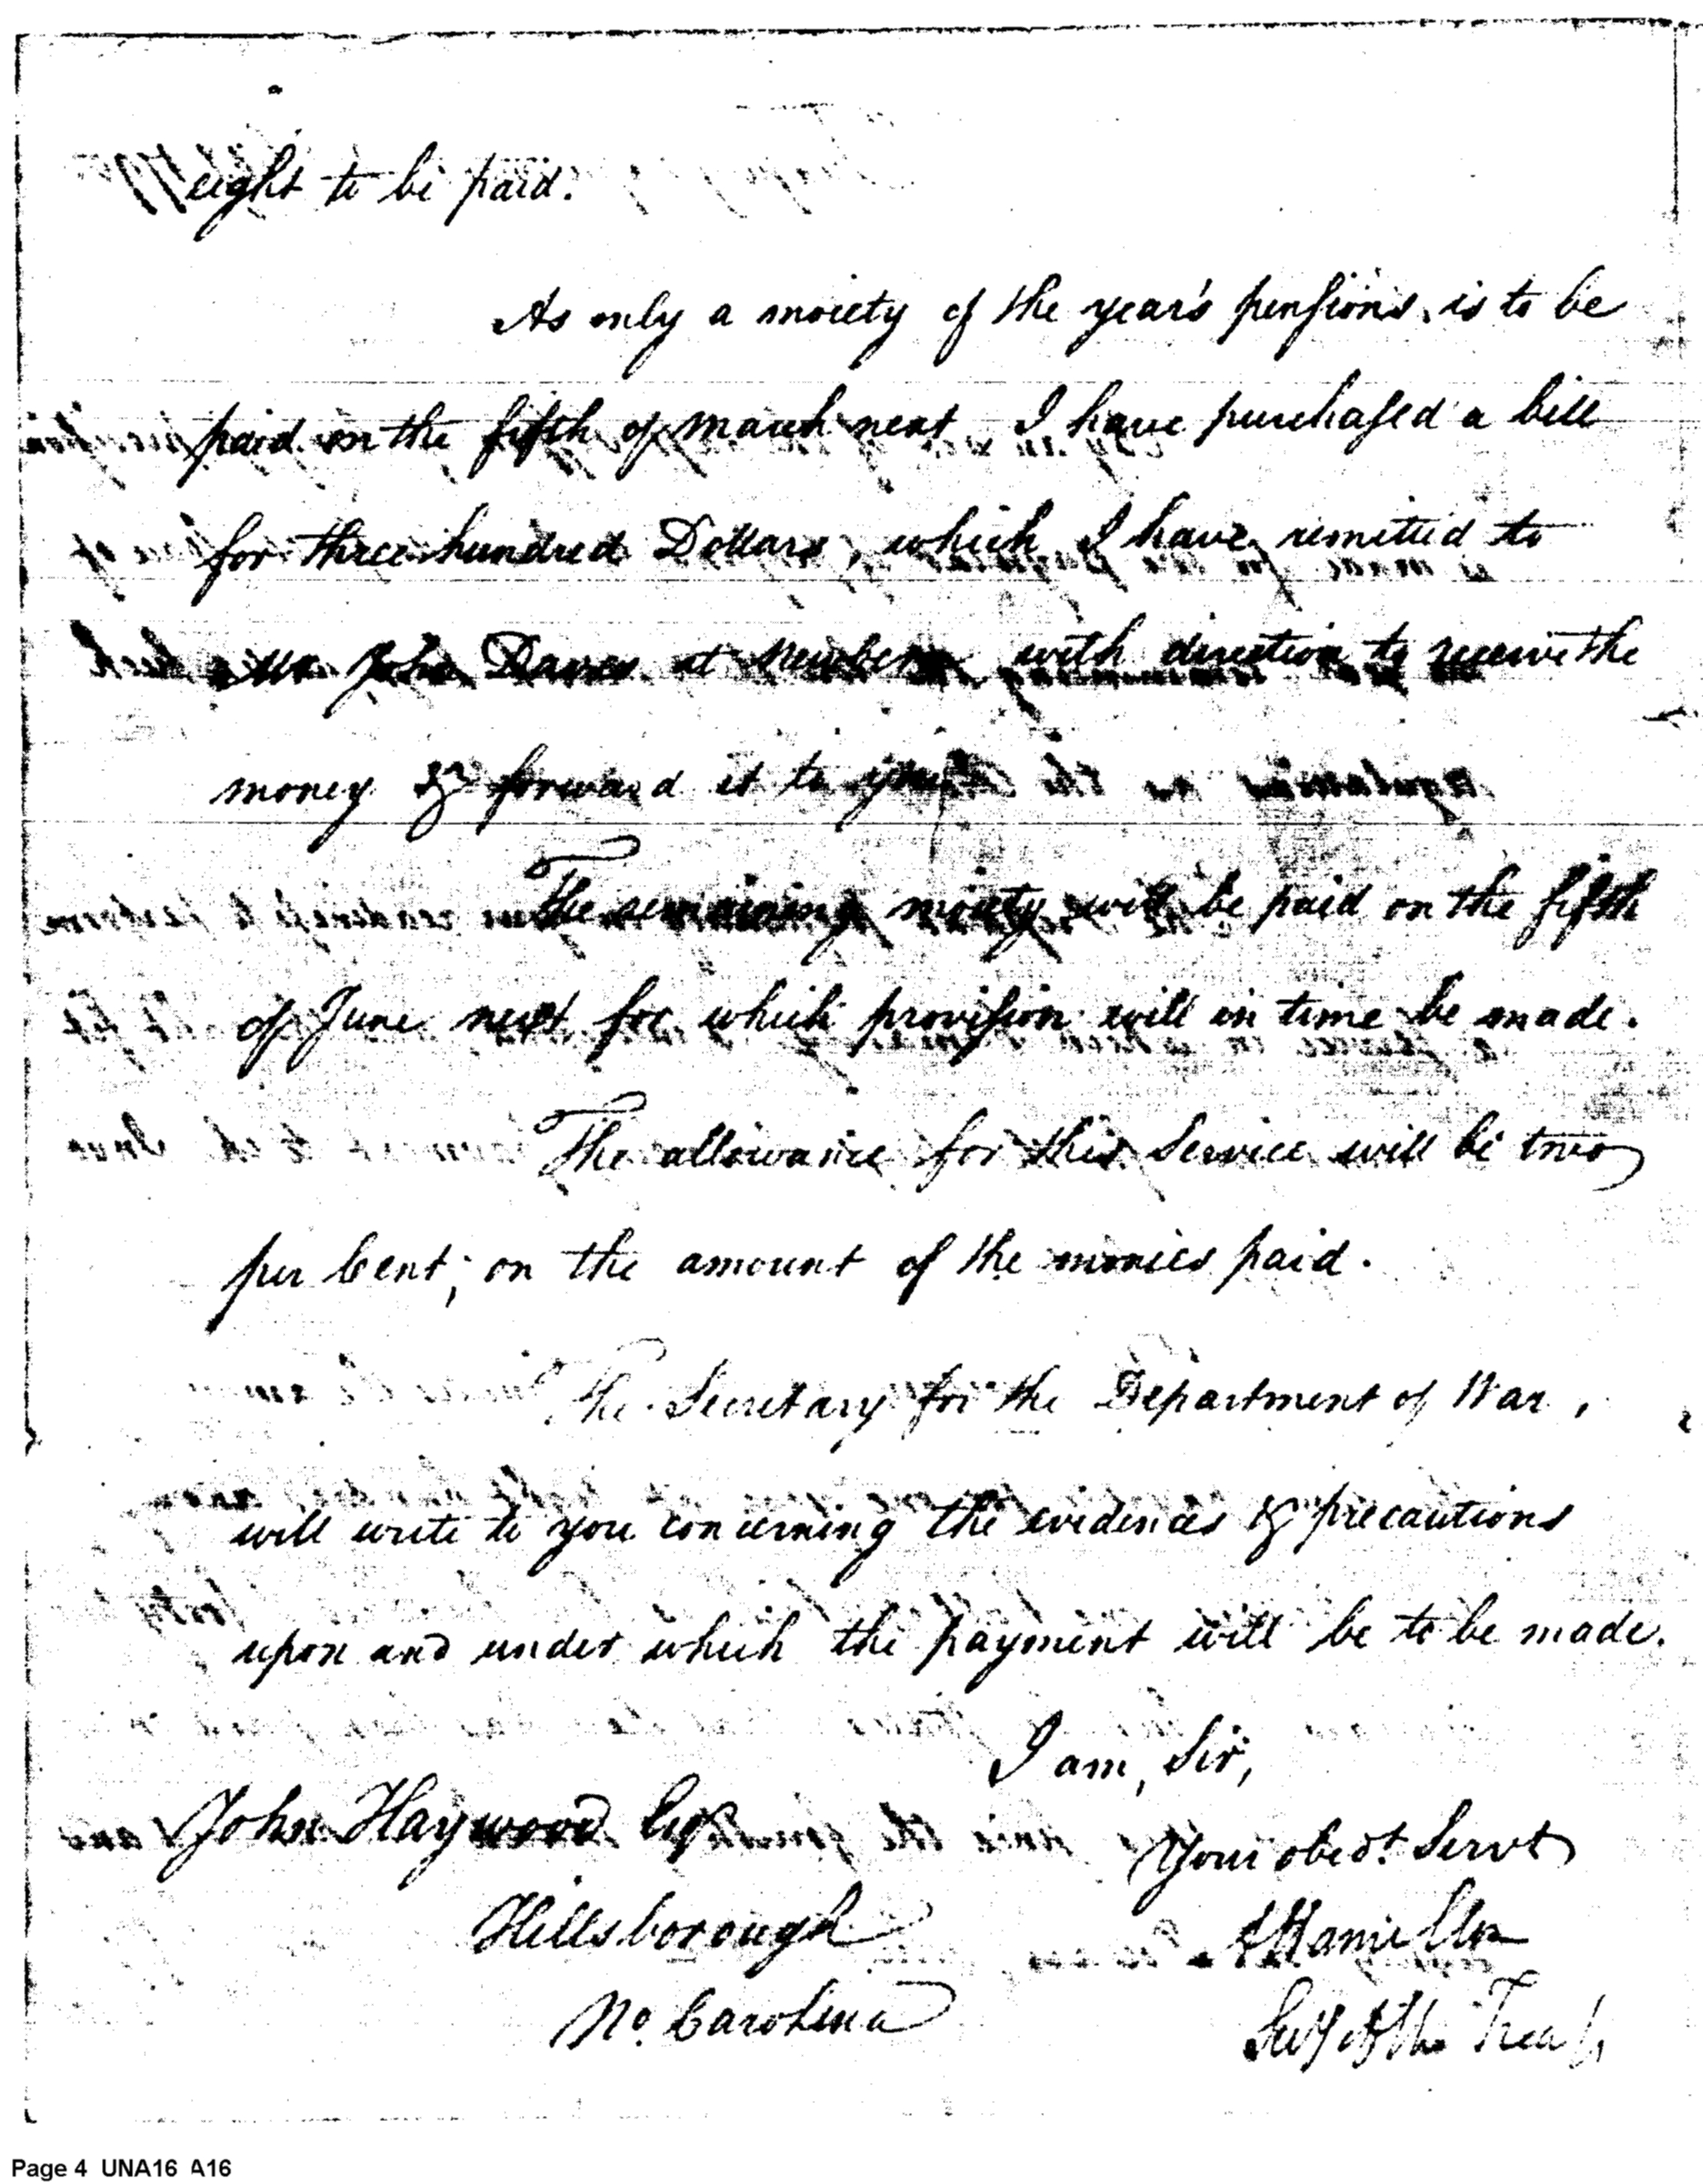 eight to be paid.
As only a moiety of the year's pensions, is to be
paid on the fifth of march next I have purchased a bill
for three hundred Dollars, which I have remitted to
Mr John Daves at Newbern with direction to receive the
money & forward it to you.
The remaining moiety will be paid on the fifth
of June next for which provision will in time be made.
The allowance for this Service will be two
per Cent; on the amount of the monies paid.
The Secretary for the Department of War,
will write to you concerning the evidences & precautions
upon and under which the payment will be to be made.
I am, Sir,
John Haywood Esqr
Your obedt. Servt
Hillsborough
A Hamilton
No. Carolina
Secy of the Treasy
Page 4 UNA16 A16